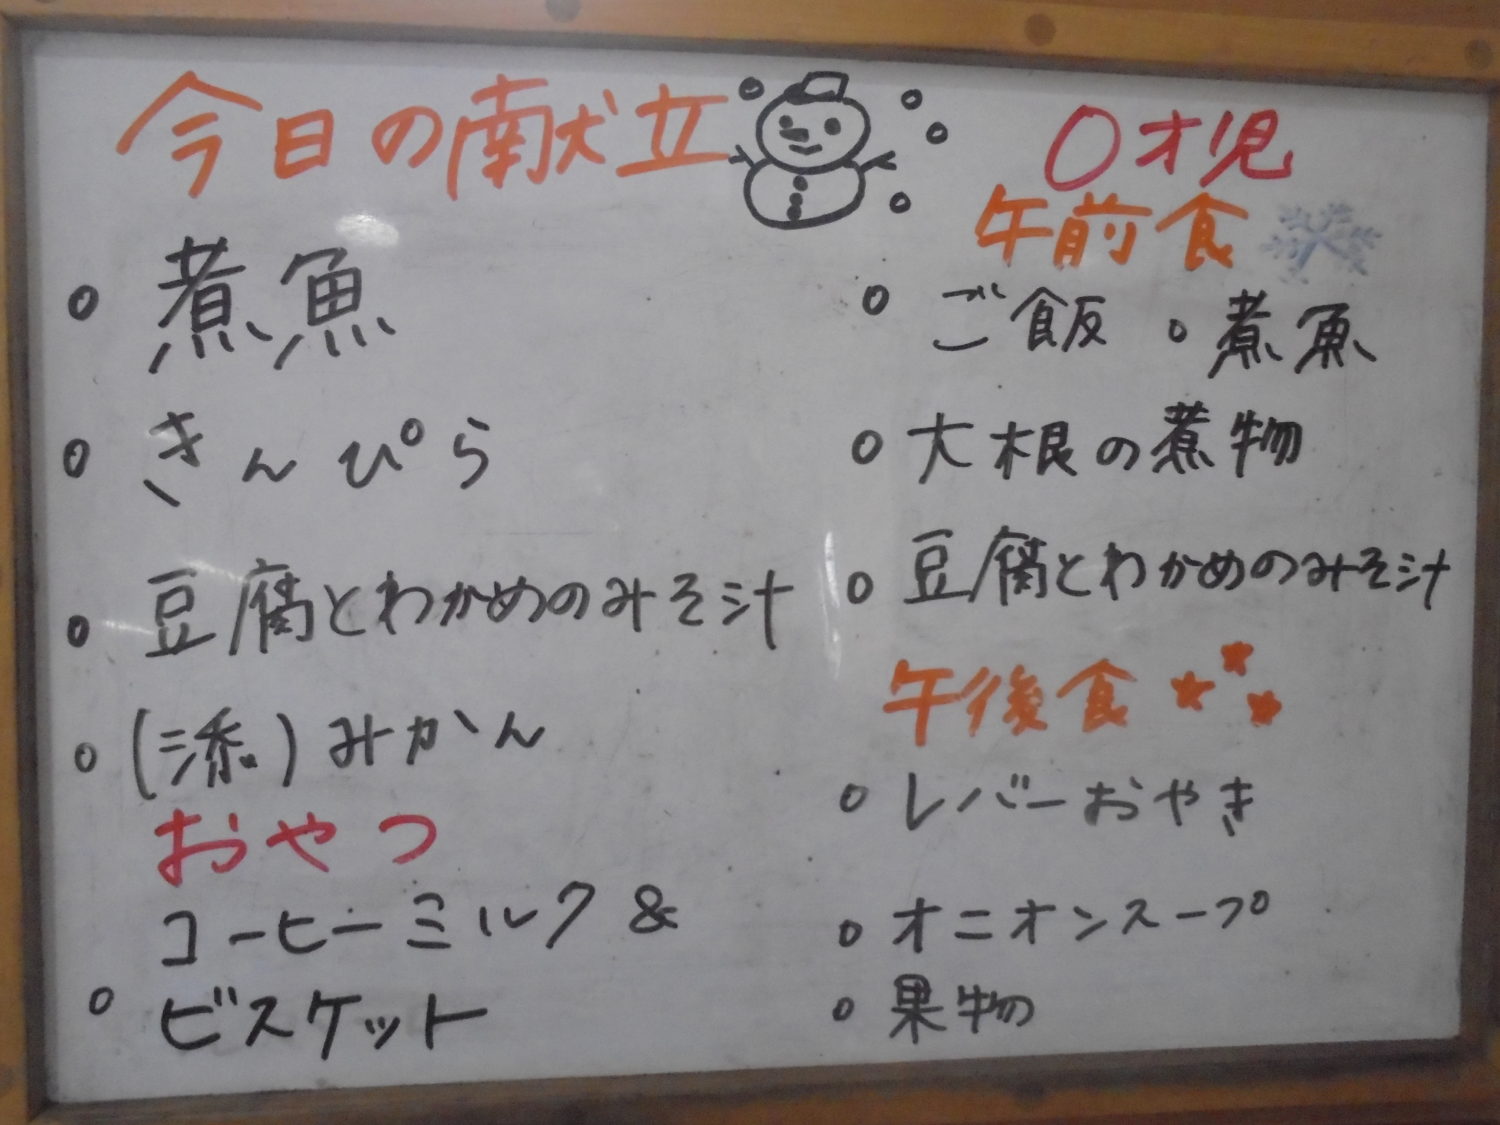 今日の献立
◦ 煮魚
◦ きんぴら
◦ 豆腐とわかめのみそ汁
◦ (添)みかん
おやつ
コーヒーミルク&
◦ ビスケット
0才児
午前食
◦ ご飯 ◦ 煮魚
◦ 大根の煮物
◦ 豆腐とわかめのみそ汁
午後食
◦ レバーおやき
◦ オニオンスープ
◦ 果物